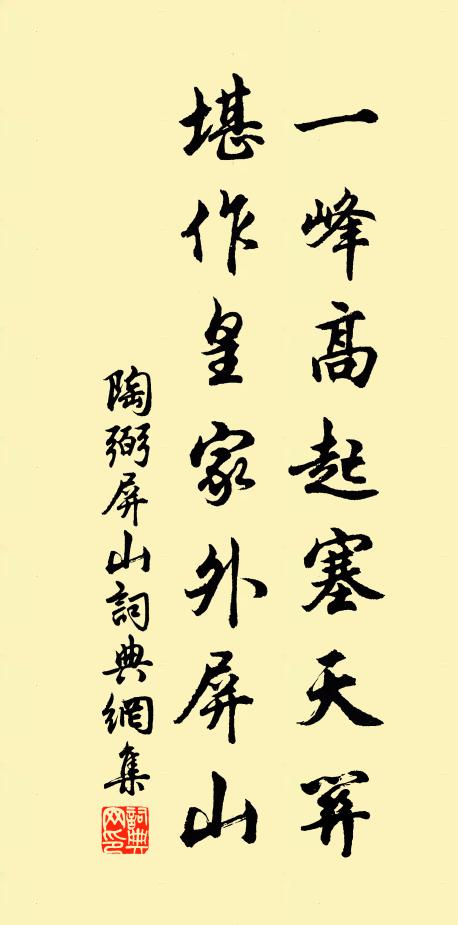 一峰高起塞天關
堪作皇家外屏山
陶弼屏山詞典網集
詞典网印